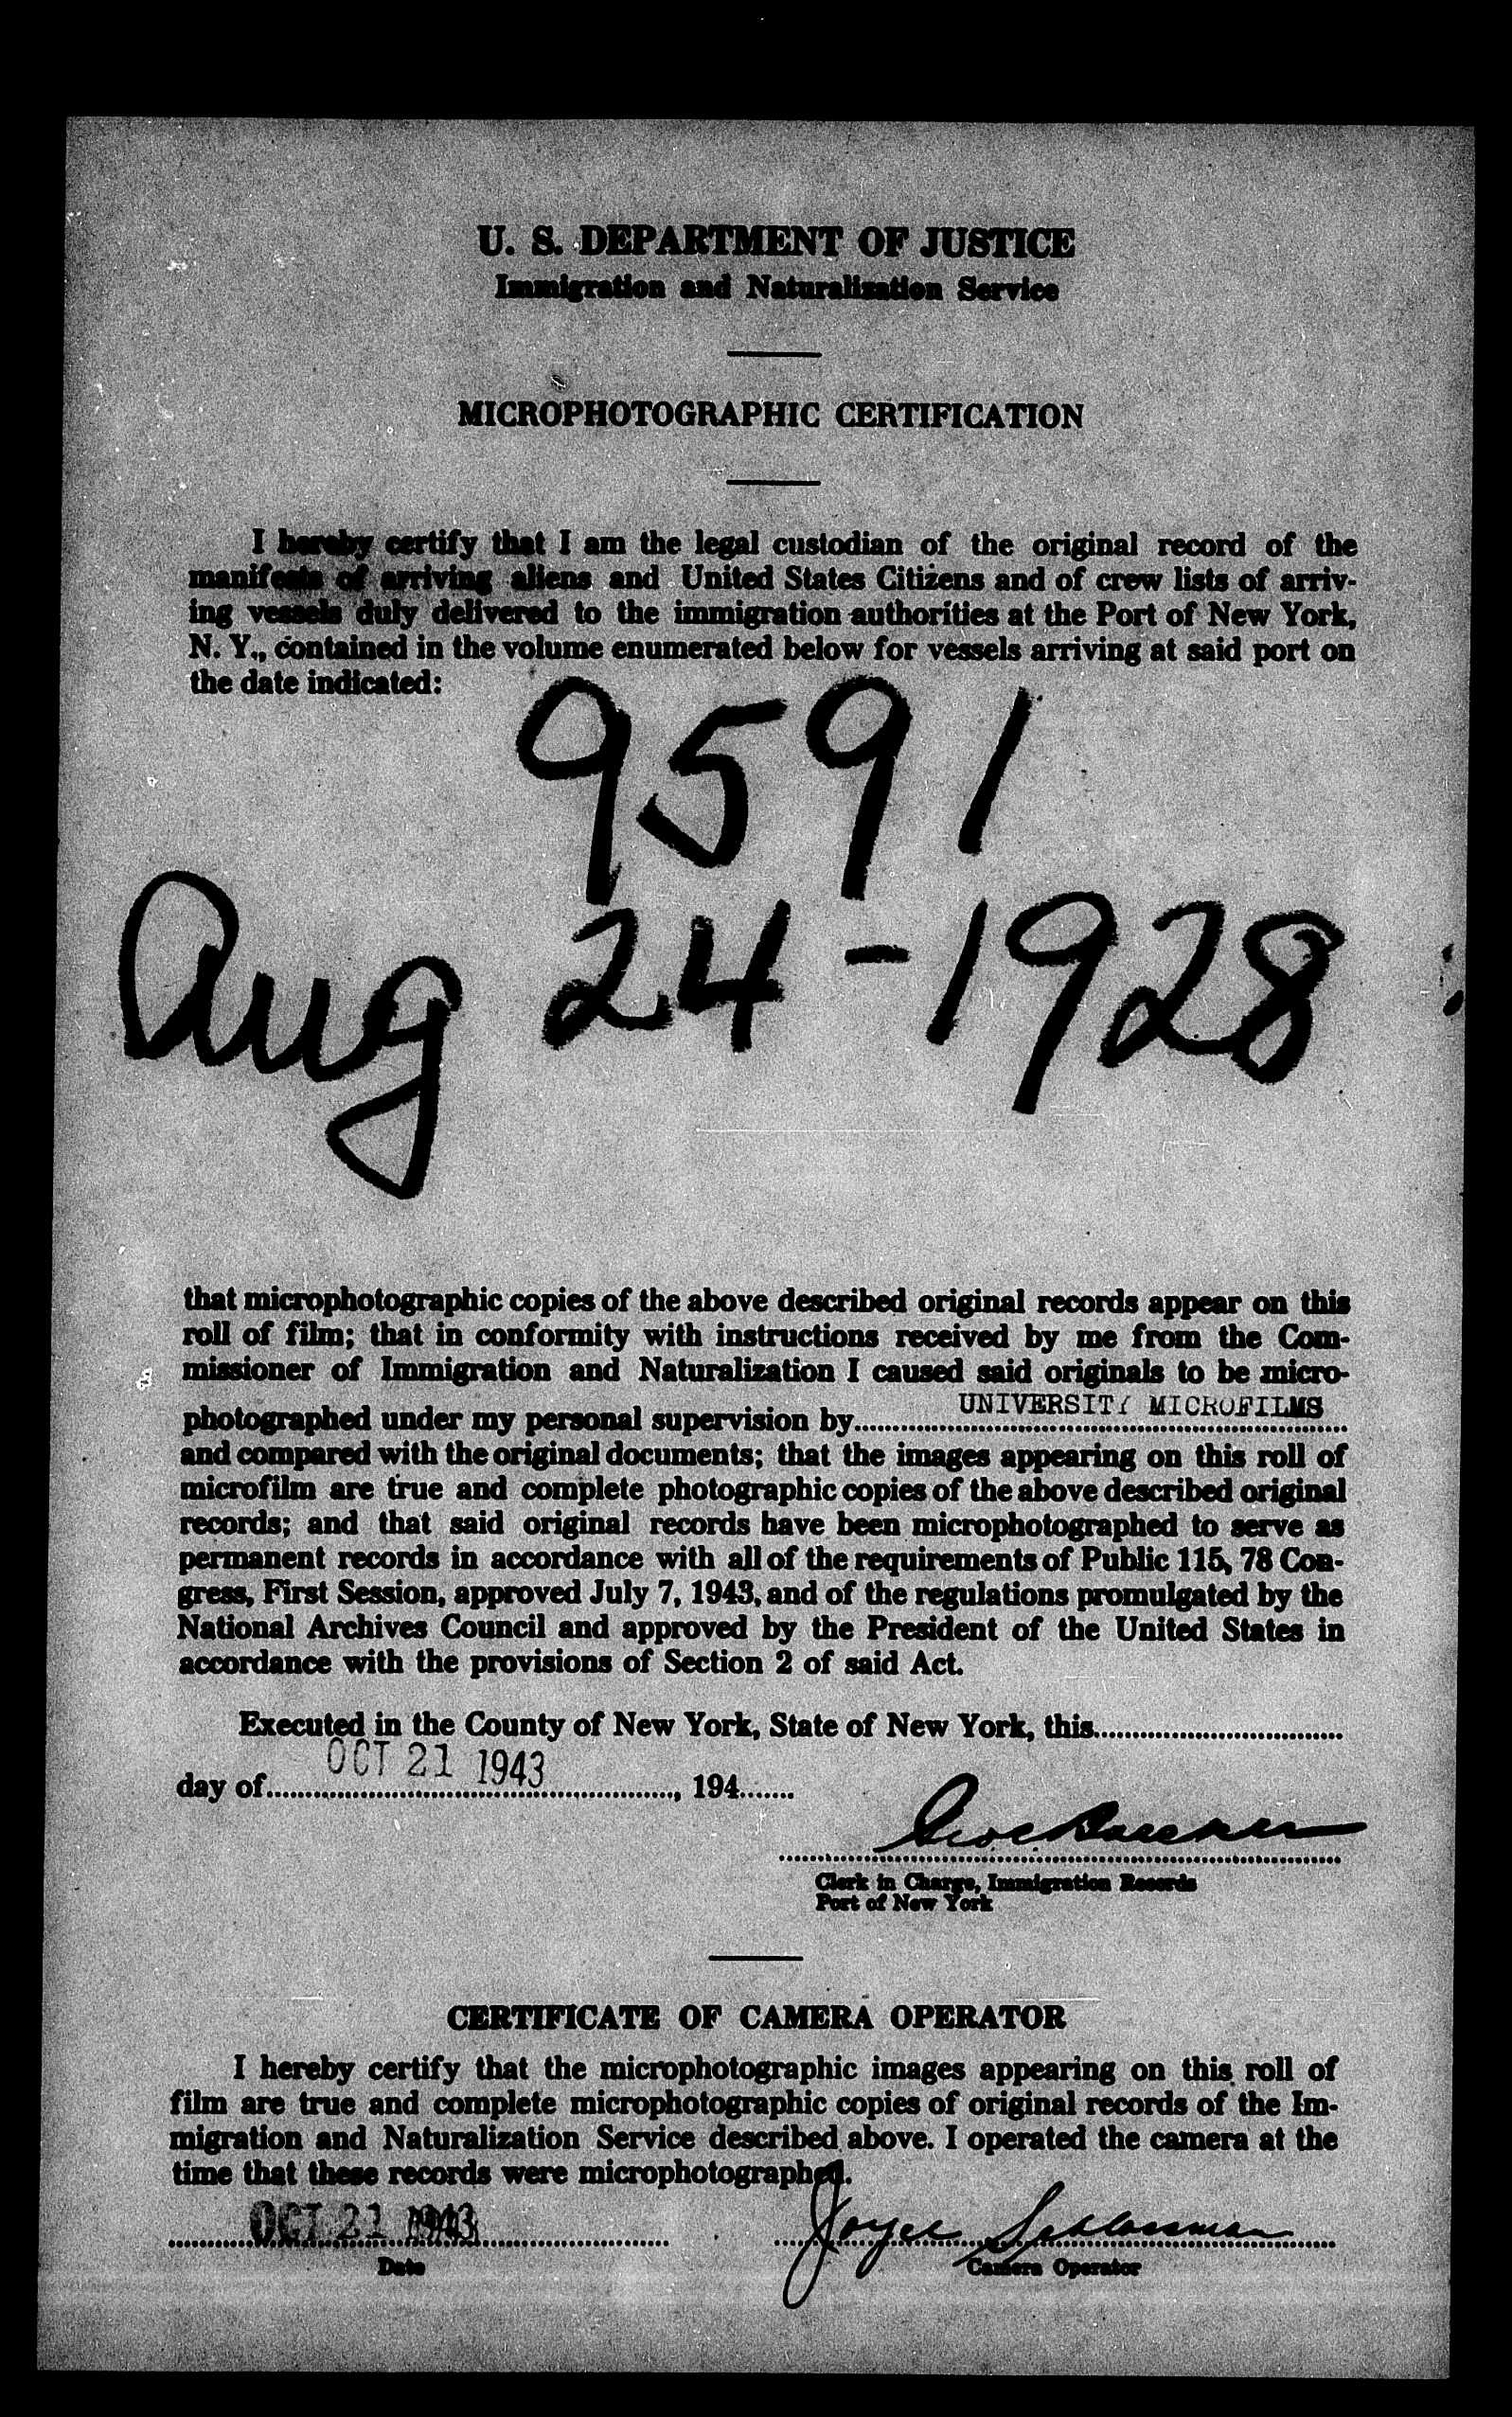 U. S. DEPARTMENT OF JUSTICE
Immigration and Naturalization Service
MICROPHOTOGRAPHIC CERTIFICATION
I hereby certify that I am the legal custodian of the original record of the
manifests of arriving aliens and United States Citizens and of crew lists of arriv-
ing vessels duly delivered to the immigration authorities at the Port of New York,
N. Y., contained in the volume enumerated below for vessels arriving at said port on
the date indicated:
9591
Aug 24-1928
that microphotographic copies of the above described original records appear on this
roll of film; that in conformity with instructions received by me from the Com-
missioner of Immigration and Naturalization I caused said originals to be micro-
photographed under my personal supervision by UNIVERSITY MICROFILMS
and compared with the original documents; that the images appearing on this roll of
microfilm are true and complete photographic copies of the above described original
records; and that said original records have been microphotographed to serve as
permanent records in accordance with all of the requirements of Public 115, 78 Con-
gress, First Session, approved July 7, 1943, and of the regulations promulgated by the
National Archives Council and approved by the President of the United States in
accordance with the provisions of Section 2 of said Act.
Executed in the County of New York, State of New York, this
day of OCT 21 1943, 194
Clerk in Charge, Immigration Records
Port of New York
CERTIFICATE OF CAMERA OPERATOR
I hereby certify that the microphotographic images appearing on this roll of
film are true and complete microphotographic copies of original records of the Im-
migration and Naturalization Service described above. I operated the camera at the
time that these records were microphotographed.
OCT 21 1943 Joyce Schlossman
Date Camera Operator